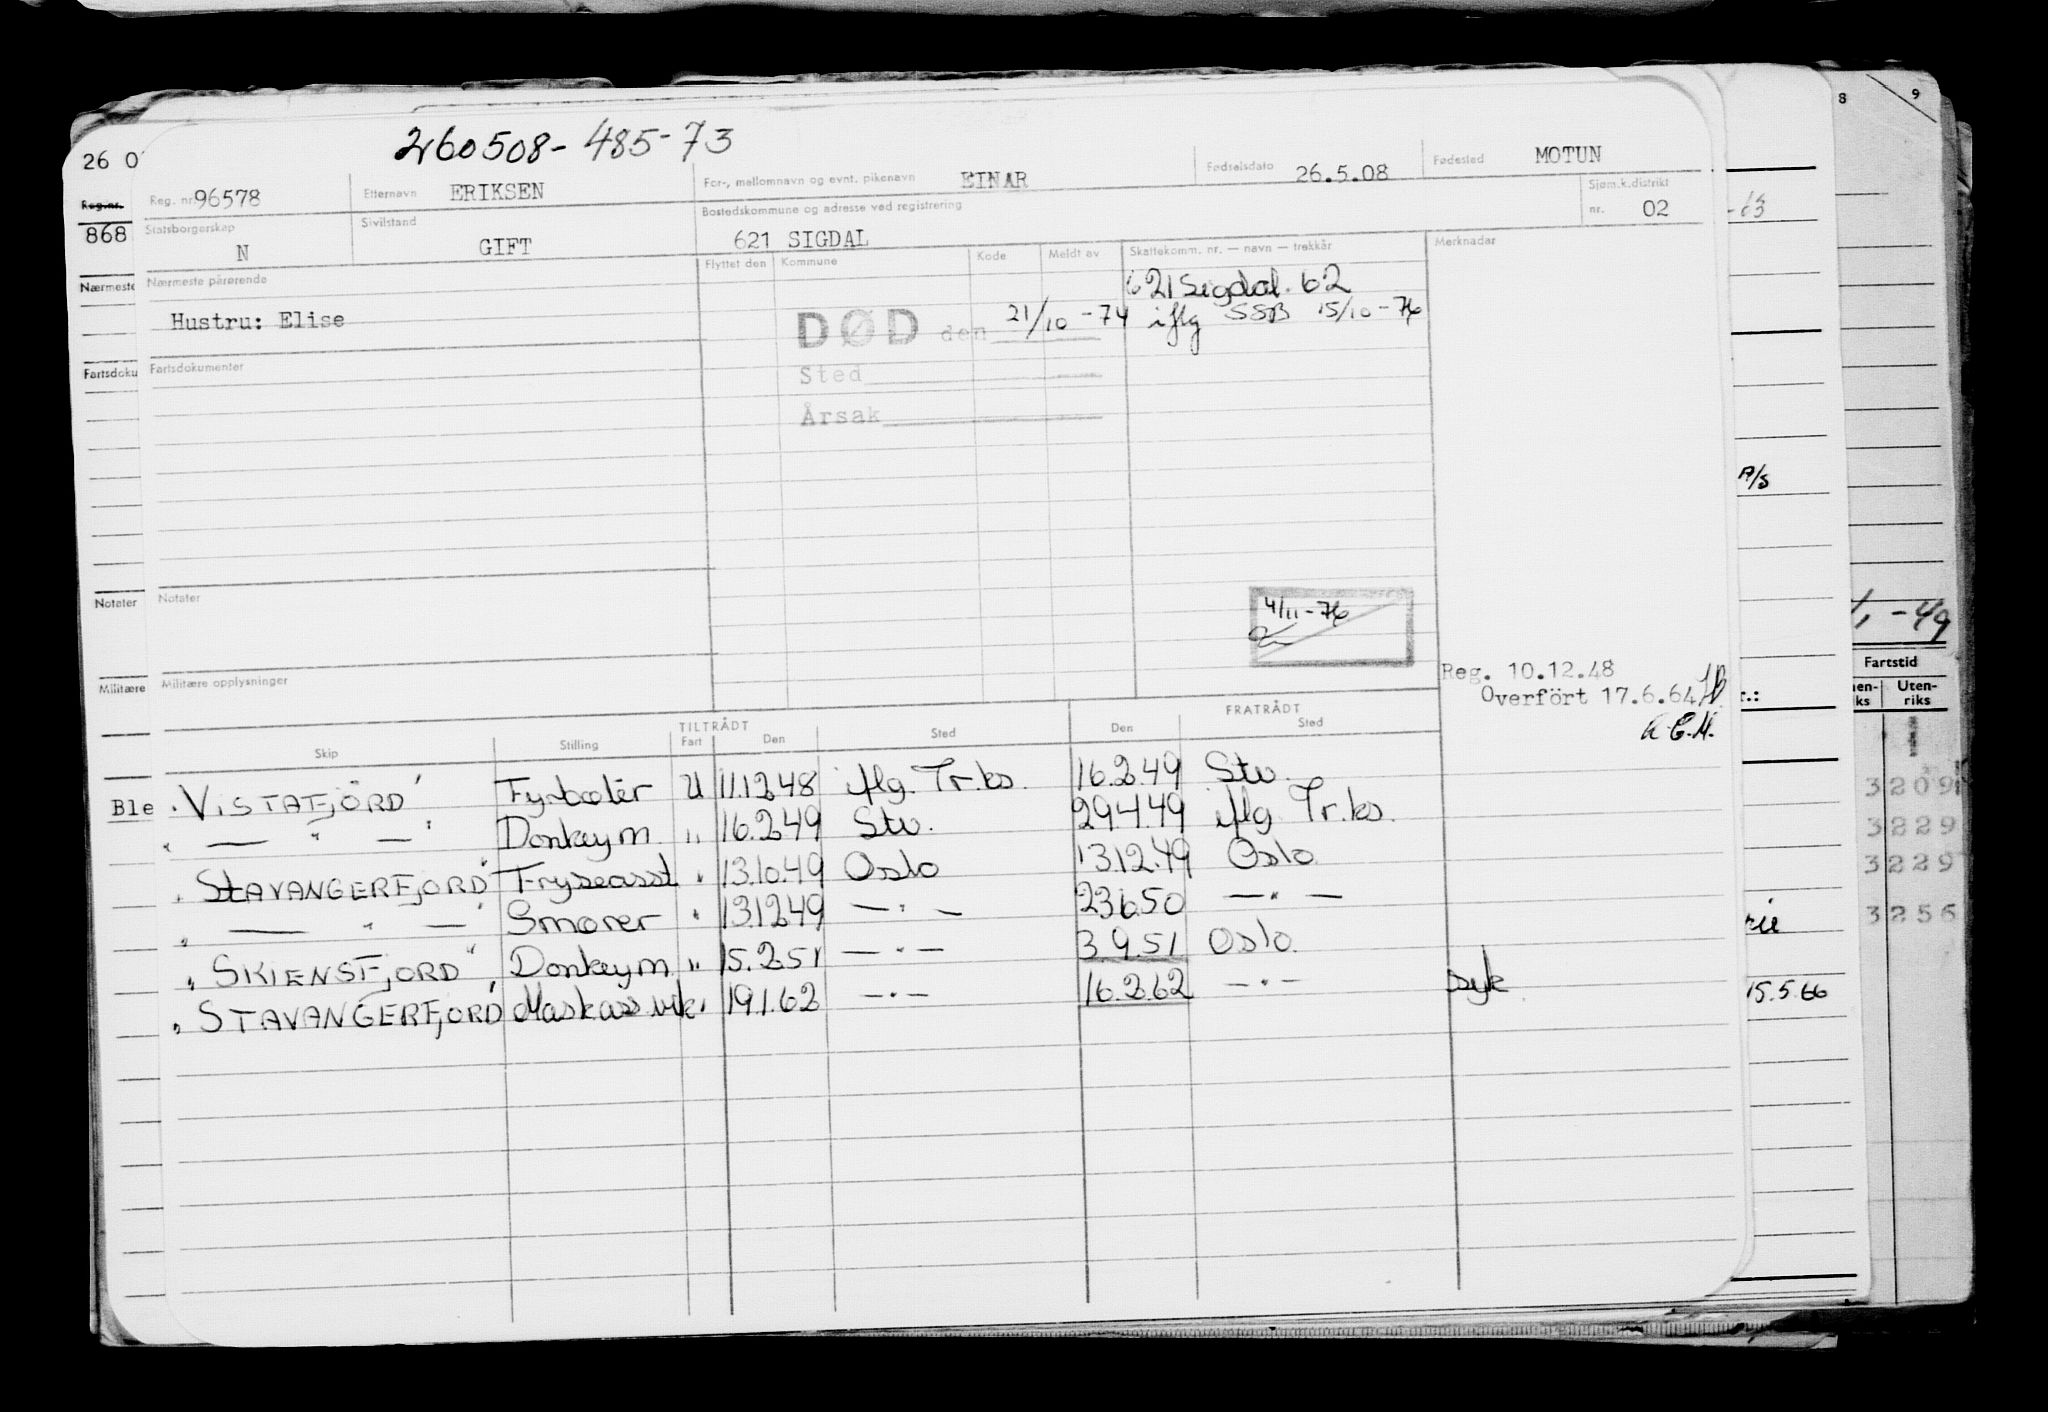 260508-485-73
Reg. nr. 96578 Etternavn ERIKSEN For-, mellomnavn og evnt. pikenavn EINAR Fødselsdato 26.5.08 Fødested MOTUN
Statsborgerskap N Sivilstand GIFT Bostedskommune og adresse ved registrering 621 SIGDAL Sjøm.k.distrikt nr. 02
Nærmeste pårørende Flyttet den Kommune Kode Meldt av Skattekomm. nr. — navn — trekkår Merknader
621 Sigdal. 62
Hustru: Elise
DØD den 21/10-74 iflg SSB 15/10-76
Fartsdokumenter
Sted
Årsak
Notater
4/11-76
Militære opplysninger
Reg. 10.12.48
Overført 17.6.64
TILTRÅDT FRATRÅDT
Skip Stilling Fart Den Sted Den Sted
VISTAFJORD Fyrbøter U 11.12.48 iflg. Tr.ks. 16.2.49 Stv.
— " — Donkeym. " 16.2.49 Stv. 29.4.49 iflg Tr.ks.
STAVANGERFJORD Fryseasst " 13.10.49 Oslo 13.12.49 Oslo
— " — Smører " 13.12.49 — " — 23.6.50 — " —
SKIENSFJORD Donkeym. " 15.2.51 — " — 3.9.51 Oslo.
STAVANGERFJORD Maskass.vik. " 19.1.62 — " — 16.2.62 — " — syk
26 0
Reg.nr.
868
Nærmeste
Fartsdoku
Notater
Militære
Ble
8
9
-63
A/S
-49
Fartstid
Uten-
riks
3209
3229
3229
3256
15.5.66